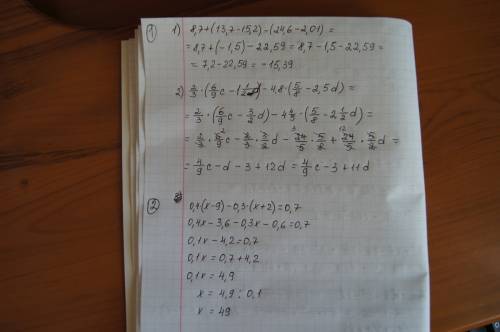 ① 1) 8,7+(13,7-15,2)-(24,6-2,01)=
=8,7+(-1,5)-22,59=8,7-1,5-22,59=
=7,2-22,59=-15,39
2) 2/3·(6/9c-1 1/2d)-4,8·(5/8-2,5d)=
=2/3·(6/9c-3/2d)-4 4/5·(5/8-2 1/2d)=
=2/3·6/9c-2/3·3/2d-24/5·5/8+24/5·5/2d=
=4/9c-d-3+12d=4/9c-3+11d
②
0,4·(x-9)-0,3·(x+2)=0,7
0,4x-3,6-0,3x-0,6=0,7
0,1x-4,2=0,7
0,1x=0,7+4,2
0,1x=4,9
x=4,9:0,1
x=49